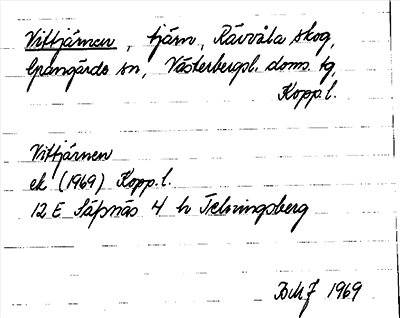 Vittjärnen, tjärn, Rävvåla skog,
Grangärde sn, Västerbergsl. doms. tg,
Kopp. l.
Vittjärnen
ek (1969) Kopp. l.
12 E Säfsnäs 4 h Telningsberg
1969